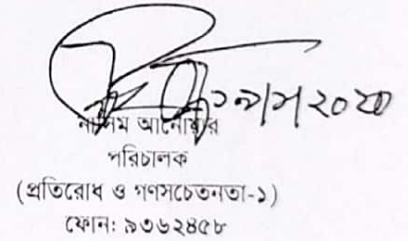 নাসিম আনোয়ার
পরিচালক
(প্রতিরোধ ও গণসচেতনতা-১)
ফোন: ৯৩৬২৪৫৮